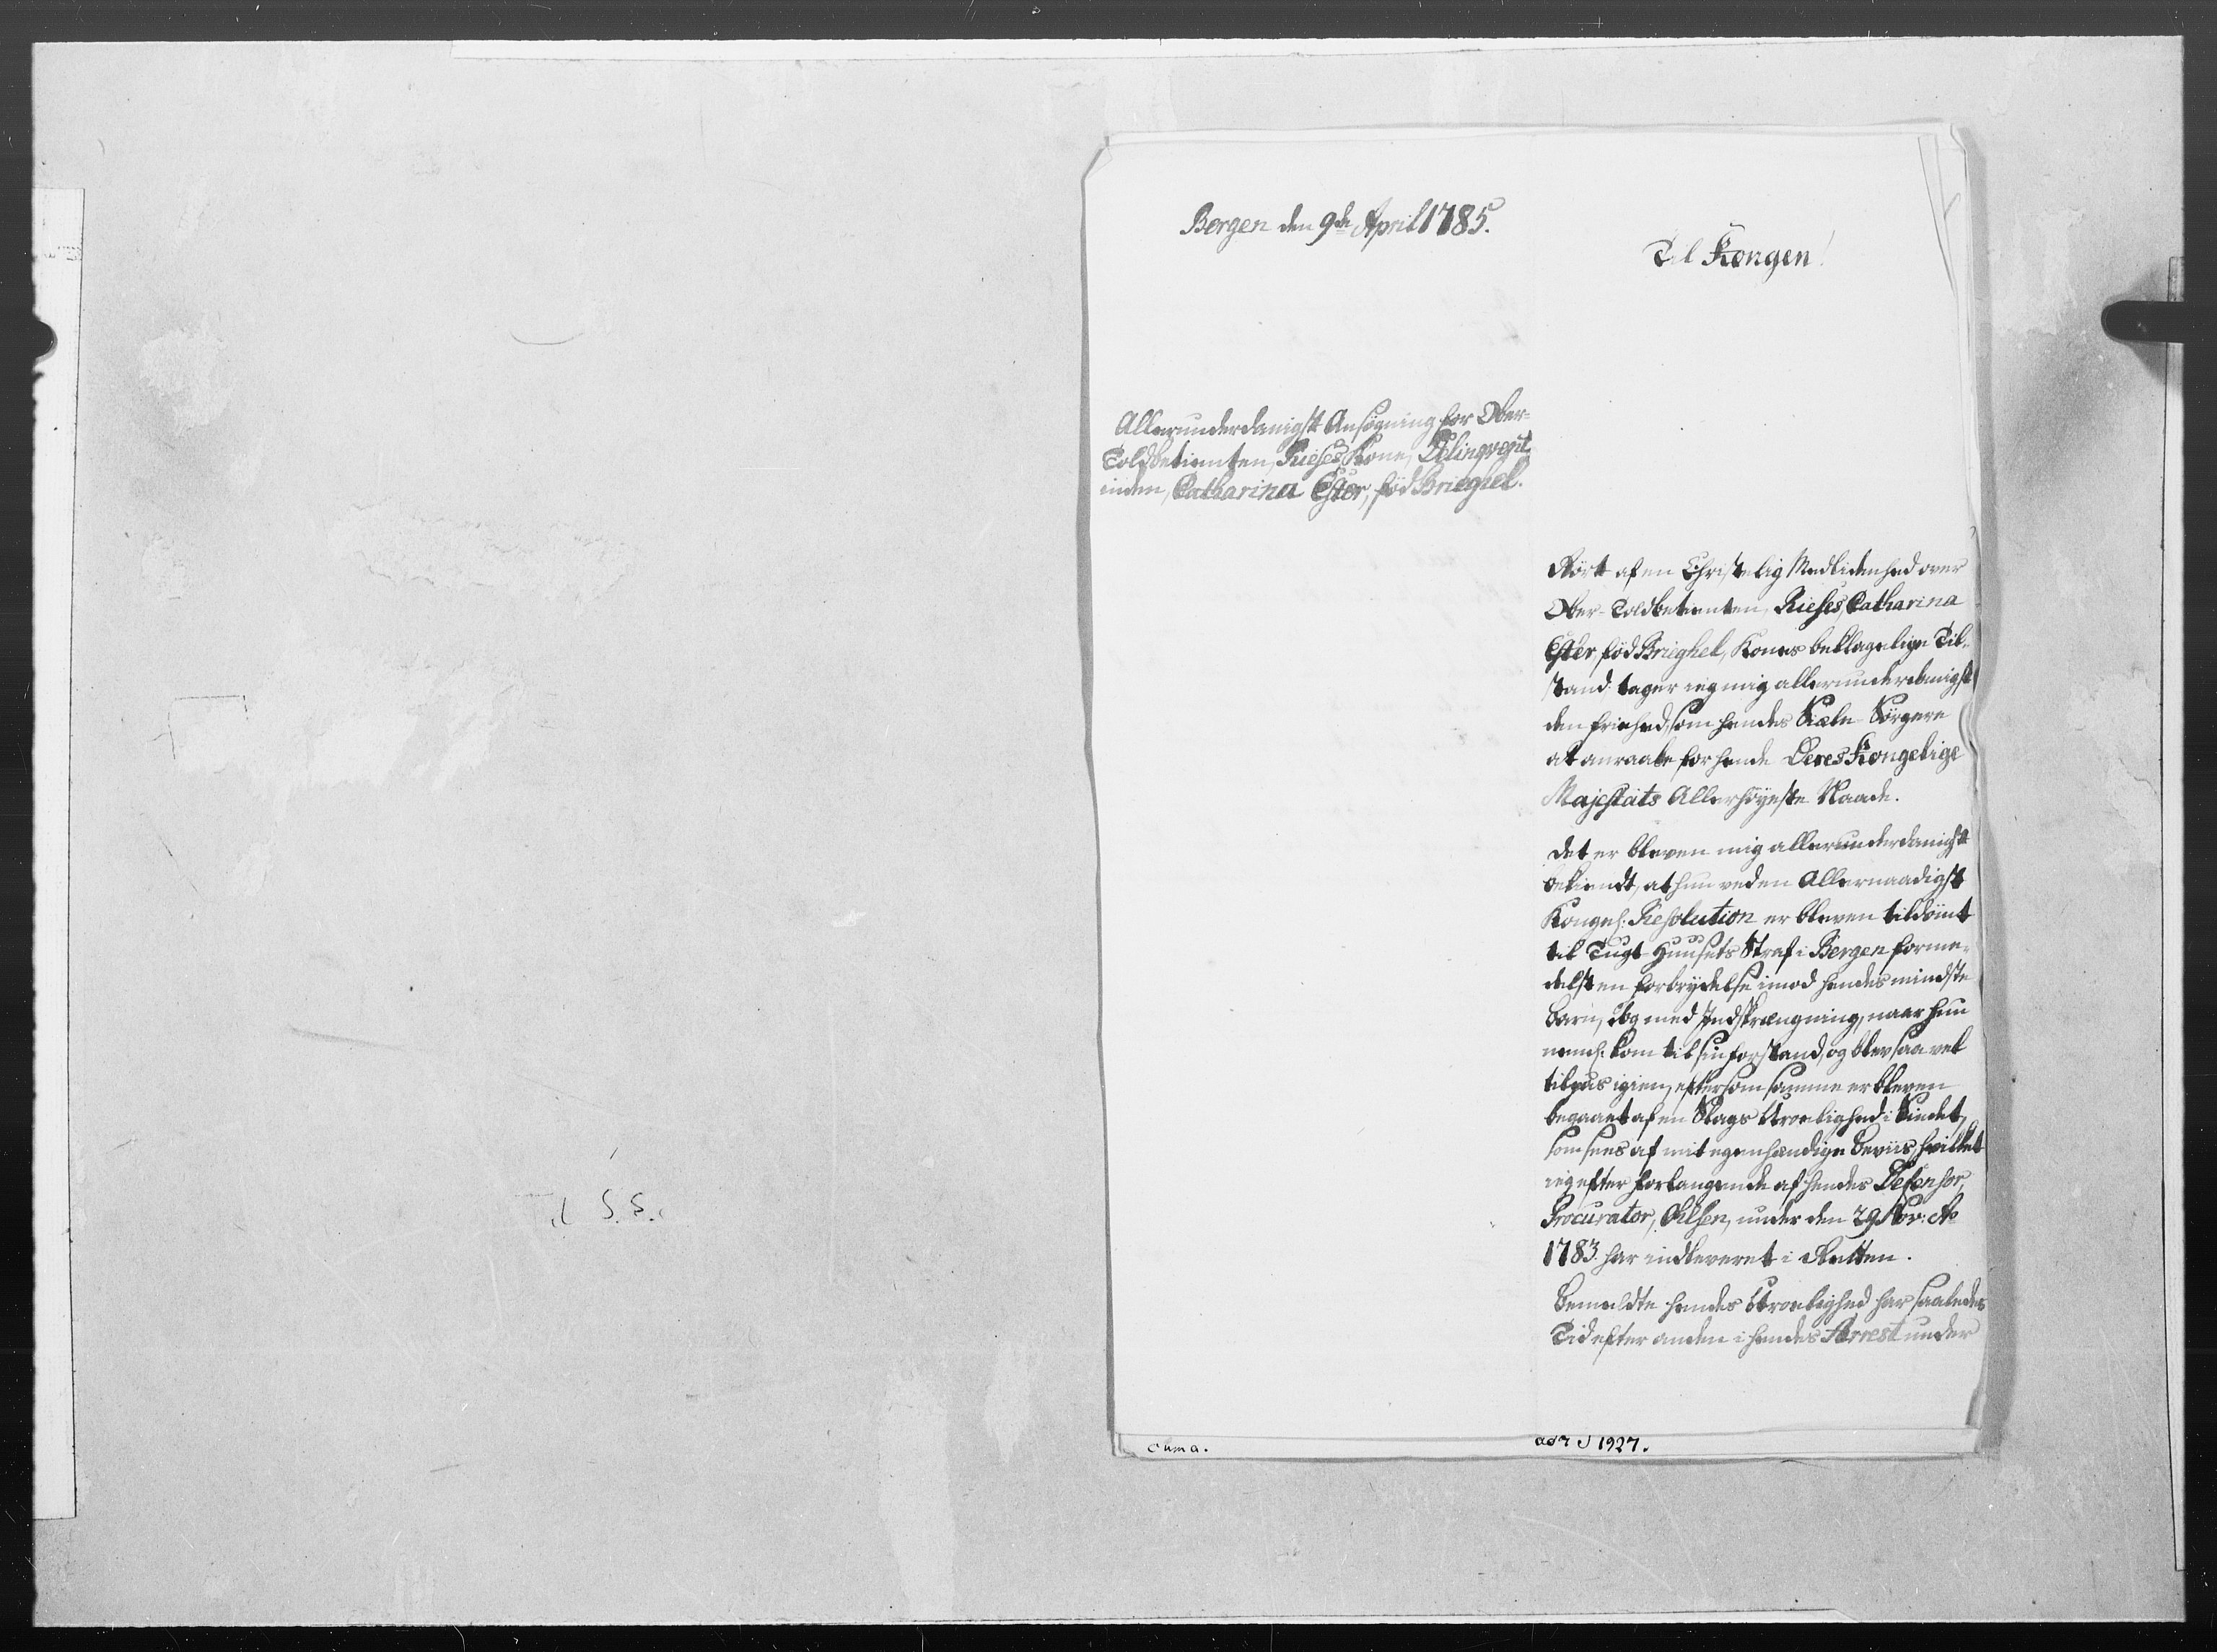 Bergen den 9de April 1785.
Til Kongen!
Allerunderdanigst Ansøgning for Ober-
Toldbetienten, Rieses Kone, Delinqvent-
inden, Catharina Ester, fød Brieghel.
Rørt af en Christelig Medlidenhed over
Ober-Toldbetienten, Rieses, Catharina
Ester, fød Brieghel, Kones beklagelige Til-
stand tager ieg mig allerunderdanigst
den Friehed, som hendes Siæle-Sørgere
at anraabe for hende Deres Kongelige
Majestäts Allerhøyeste Naade.
Det er bleven mig allerunderdanigst
bekiendt, at hun ved en Allernaadigst
Kongel: Resolution er bleven tildømt
til Tugt-Huusets Straf i Bergen forme-
delst en Forbrydelse imod hendes mindste
Barn, dog med Indskrængning, naar hun
neml: kom til sin Forstand, og blev saa vel
tilpas igien, eftersom samme er bleven
begaaet af en Slags Uroelighed i Sindet,
som sees af mit egenhændige Beviis, hvilket
ieg efter Forlangende af hendes Defensor,
Procurator, Olsen, under den 29 Nov: Ao
1783 har indleveret i Retten.
Bemeldte hendes Uroelighed har saaledes
Tid efter anden i hendes Arrest under
Til S. S.
1927.